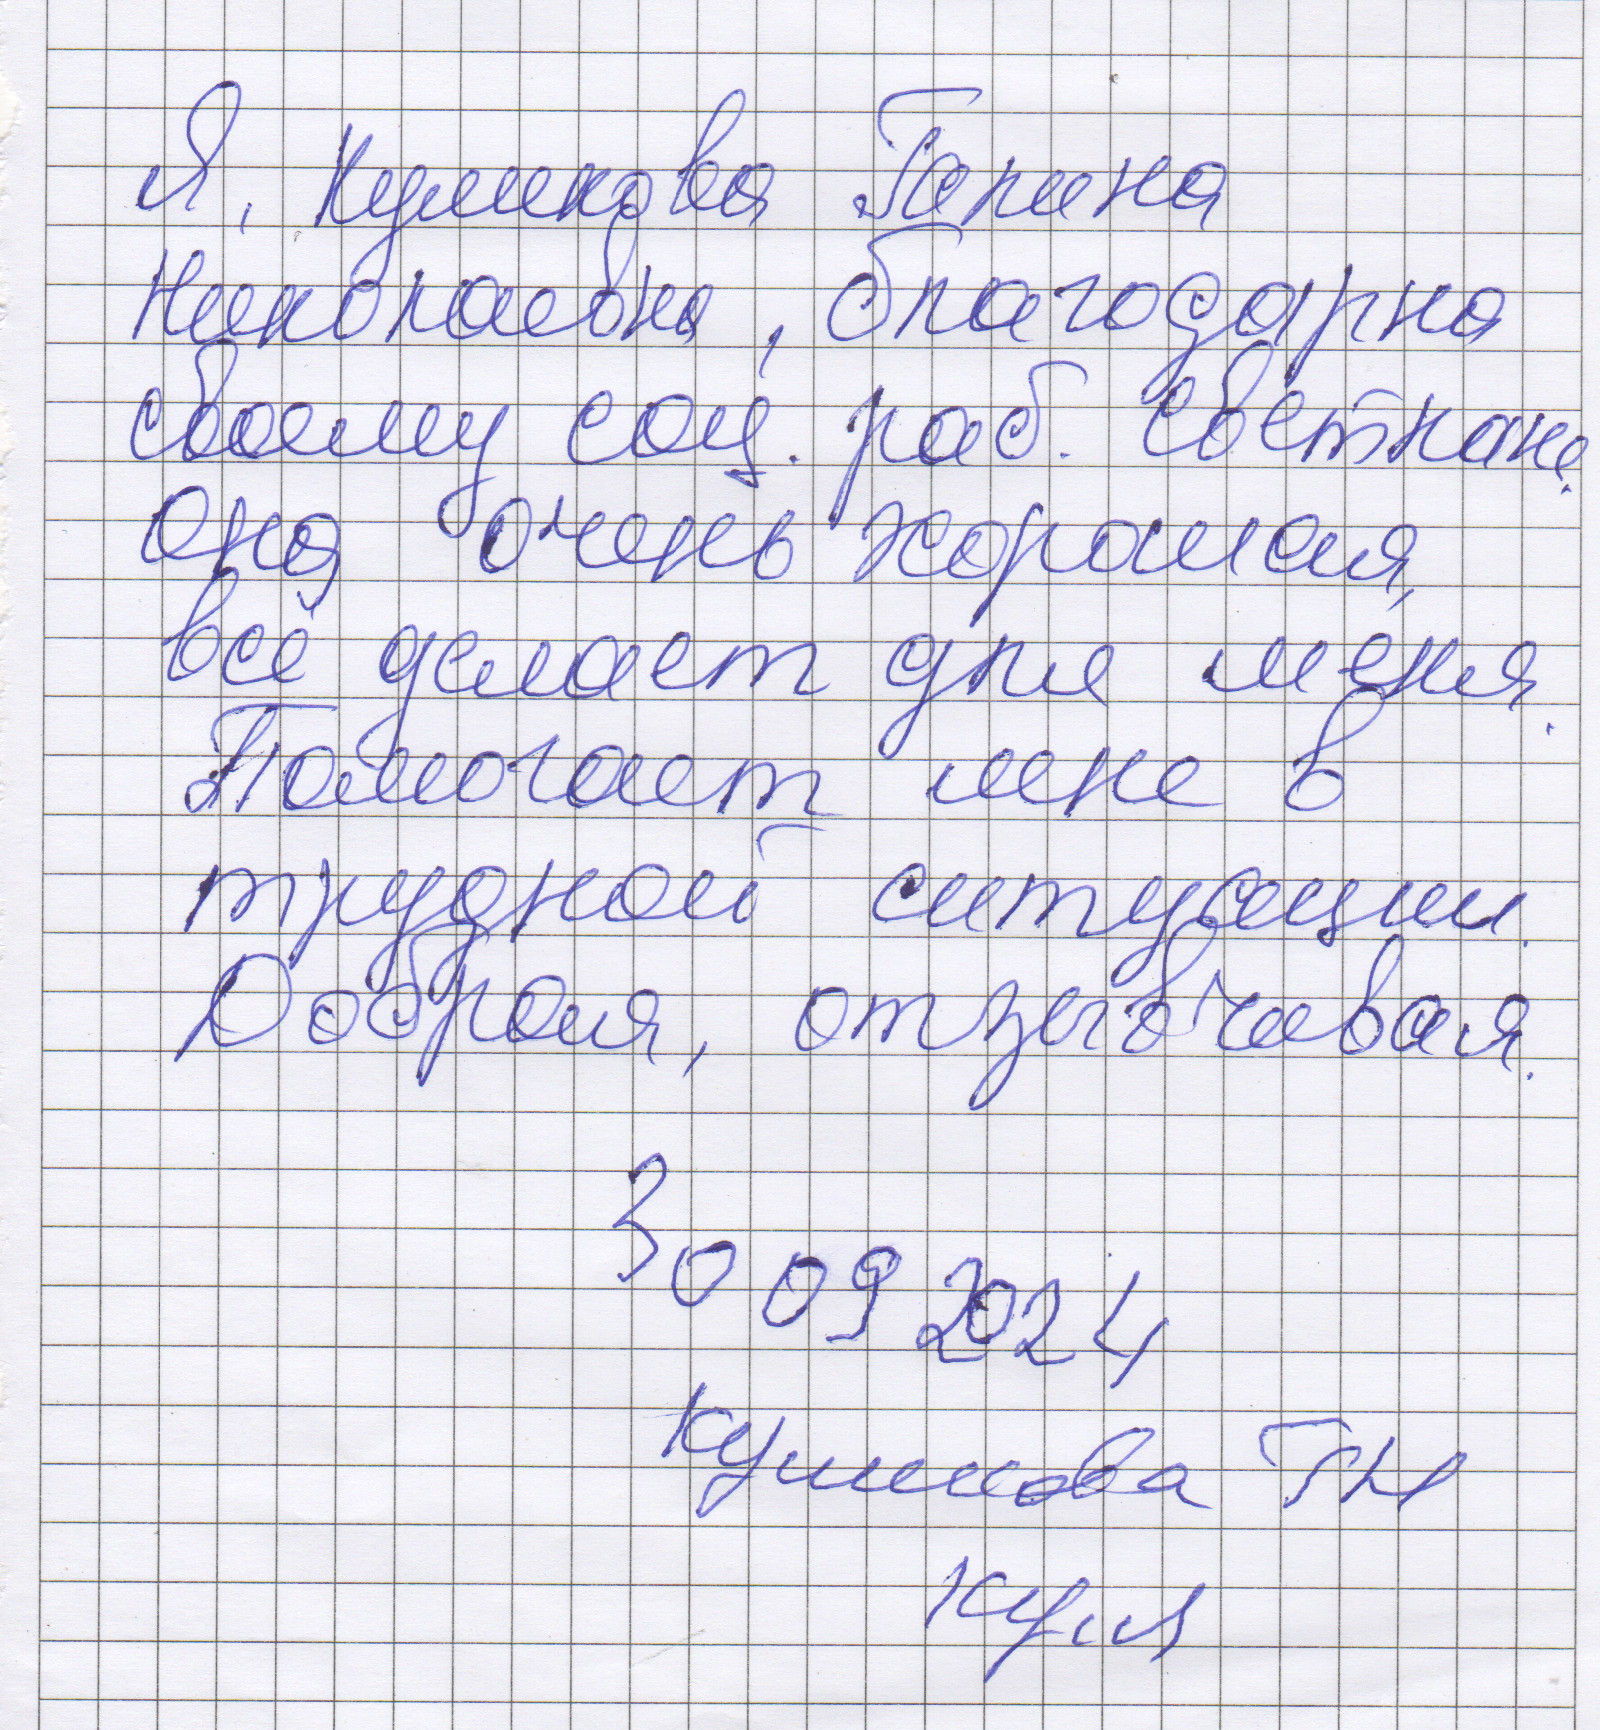 Я, Куликова Галина
Николаевна, благодарна
своему соц. раб. Светлане.
Она очень хорошая,
всё делает для меня.
Помогает мне в
трудной ситуации.
Добрая, отзывчивая.
30 09 2024
Куликова ГН